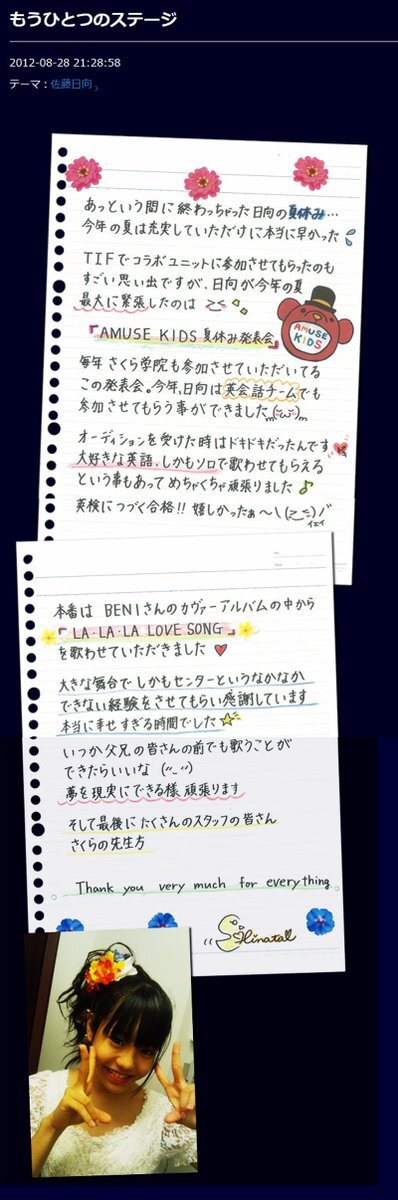 もうひとつのステージ
2012-08-28 21:28:58
テーマ：佐藤日向
あっという間に終わっちゃった日向の夏休み…
今年の夏は充実していただけに本当に早かった
TIFでコラボユニットに参加させてもらったのも
すごい思い出ですが、日向が今年の夏
最大に緊張したのは
『AMUSE KIDS 夏休み発表会』
AMUSE
KIDS
毎年さくら学院も参加させていただいてる
この発表会。今年、日向は英会話チームでも
参加させてもらう事ができました
オーディションを受けた時はドキドキだったんです
大好きな英語、しかもソロで歌わせてもらえる
という事もあってめちゃくちゃ頑張りました♪
英検につづく合格!! 嬉しかったぁ〜
イェイ
本番は BENIさんのカヴァーアルバムの中から
『LA・LA・LA LOVE SONG』
を歌わせていただきました♥
大きな舞台でしかもセンターというなかなか
できない経験をさせてもらい感謝しています
本当に幸せすぎる時間でした☆
いつか父兄の皆さんの前でも歌うことが
できたらいいな
夢を現実にできる様、頑張ります
そして最後にたくさんのスタッフの皆さん
さくらの先生方
Thank you very much for everything
Hinatal